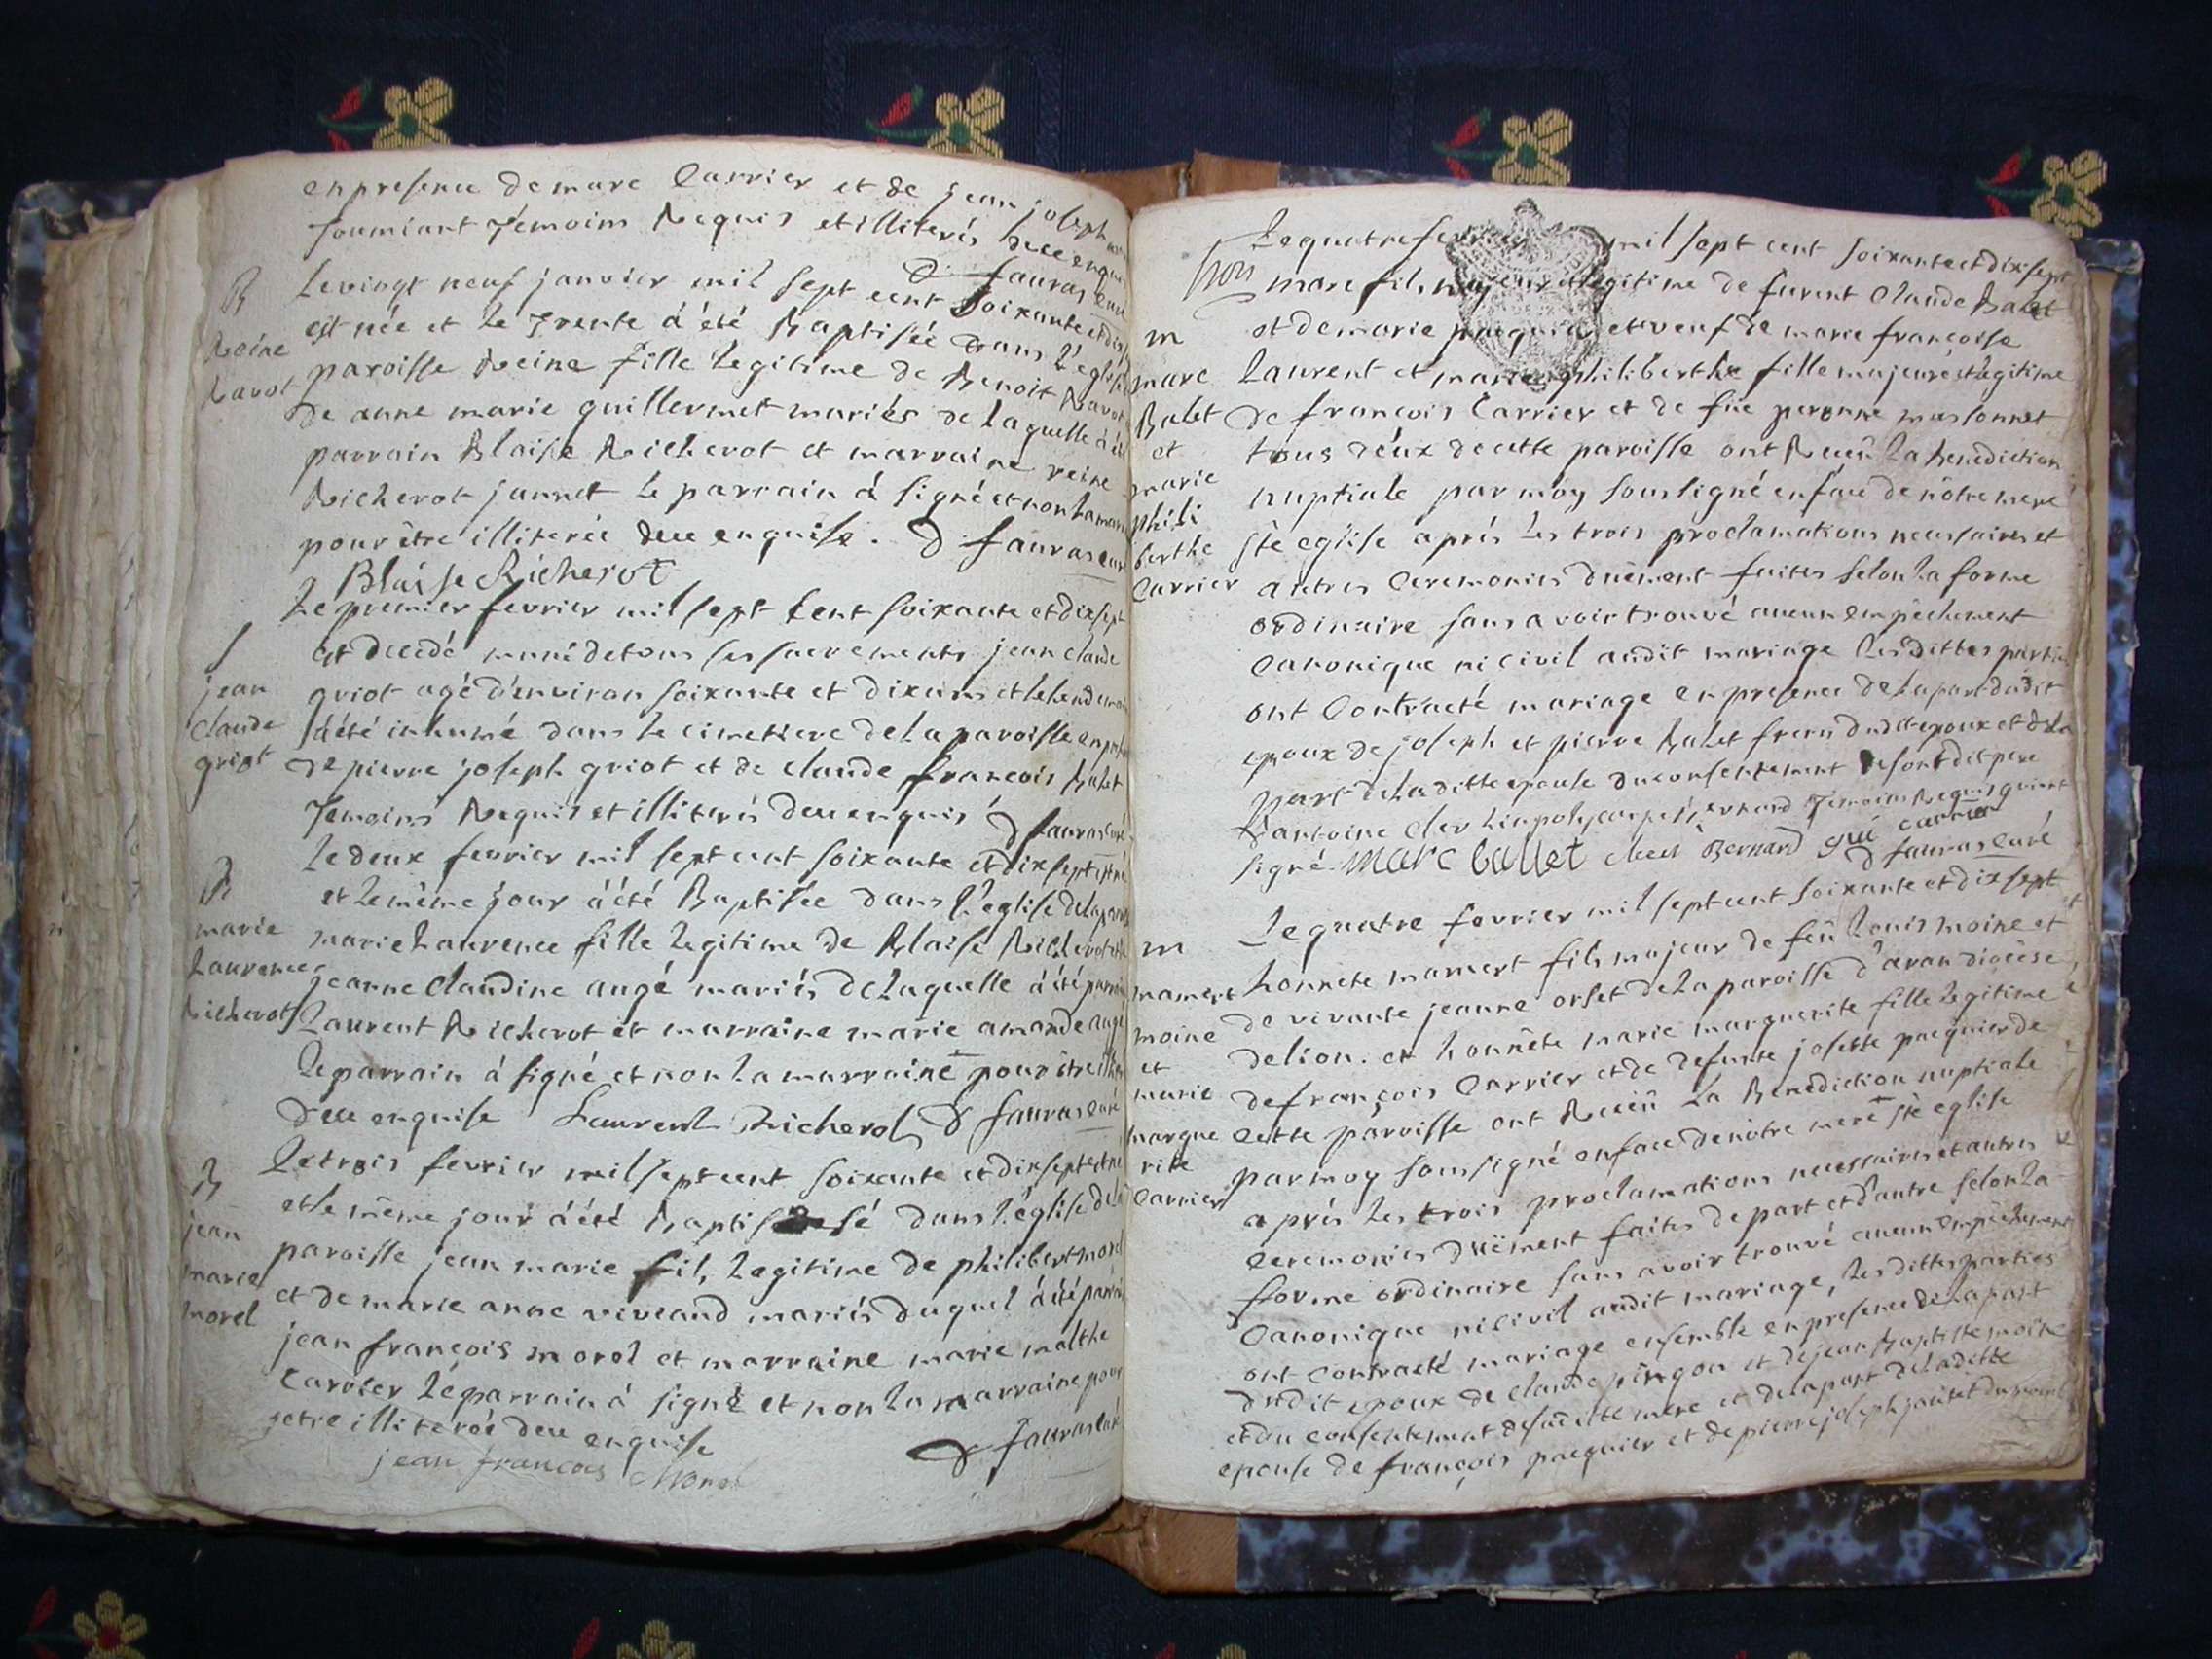 en presence de marc Carrier et de jean joseph
soumiant témoins Requis et illiterés deue enquis
D. fauras curé
B
Reine
Ravot
Le vingt neuf janvier mil sept cent soixante et dix
est née et le trente á été Baptisée dans l'eglise
paroisse Reine fille legitime de Benoit Ravot
de anne marie guillermet mariés de laquelle á été
parrain Blaise Richerot et marraine reine
Richerot jannet le parrain á signé et non la mar
pour être illiterée deue enquise. D. fauras curé
Blaise Richerot
S
jean
claude
griot
Le premier fevrier mil sept Cent soixante et dix sept
est decedé muni de tous ses sacrements jean claude
griot agé d'environ soixante et dix ans et le lendemain
á été inhumé dans le cimetiere de la paroisse en
de pierre joseph griot et de claude francois Balet
Temoins Requis et illiterés deue enquis D fauras curé
B
marie
Laurence
Richerot
Le deux fevrier mil sept cent soixante et dix sept est né
et le même jour á été Baptisée dans l'eglise de la
marie Laurence fille legitime de Blaise Richerot
jeanne Claudine augé mariés de laquelle á été parrain
Laurent Richerot et marraine marie amande augé
Le parrain á signé et non la marraine pour être
deue enquise Laurent Richerot D fauras curé
B
jean
marie
morel
Le trois fevrier mil sept cent soixante et dix sept est né
et le même jour á été Baptisé dans l'église de la
paroisse jean marie fils legitime de philibert morel
et de marie anne viveand mariés duquel á été parrain
jean françois morel et marraine marie malthe
Carrier Le parrain á signé et non la marraine pour
etre illiterée deue enquise
D fauras curé
jean francois Morel
m
marc
Balet
et
marie
phili
berthe
Carrier
Le quatre fevrier mil sept cent soixante et dix sept
marc fils majeur legitime de furent Claude Balet
et de marie paquier et veuf de marie françoise
Laurent et marie philiberthe fille majeure et legitime
de francois Carrier et de füe peronne massonnet
tous deux de cette paroisse ont Receü la benediction
nuptiale par moy soussigné en face de nôtre mere
ste eglise aprés les trois proclamations necessaires et
autres Ceremonies düement faites selon la forme
ordinaire sans avoir trouvé aucun empêchement
Canonique ni civil audit mariage les dittes parties
ont Contracté mariage en presence de la part dudit
epoux de joseph et pierre Balet freres dudit epoux et de la
part de la ditte epouse du consentement de son dit pere
d'antoine clerc policarpe bernard Temoins Requis qui ont
signé. marc ballet clerc Bernard Carrier
D fauras curé
m
mamert
moine
et
marie
margue
rite
Carrier
Le quatre fevrier mil sept cent soixante et dix sept
honnête mamert fils majeur de feü Louis moine et
de vivante jeanne orset de la paroisse d'aran diocèse
de lion. et honnête marie marguerite fille legitime
de françois Carrier et de defunte josette paquier de
Cette paroisse ont Receü La Benediction nuptiale
par moy soussigné en face de nôtre mere ste eglise
aprés les trois proclamations necessaires et autres
Ceremonies düement faites de part et d'autre selon la
forme ordinaire sans avoir trouvé aucun empêchement
Canonique ni civil audit mariage, les dittes parties
ont contracté mariage ensemble en presence de la part
dudit epoux de claude pingon et de jean Baptiste moine
et du consentement de sa ditte mere et de la part de la ditte
epouse de françois paquier et de pierre joseph